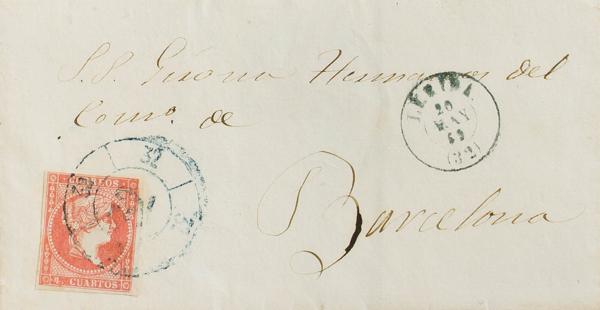 S.S. Girona Hermanos del
Como. de
Barcelona
LERIDA
20
MAY
59
(32)
32
CORREOS
4 CUARTOS